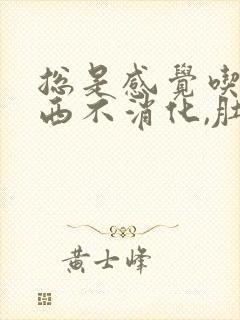 总是感覺喫
西不消化,肚
黄士峰